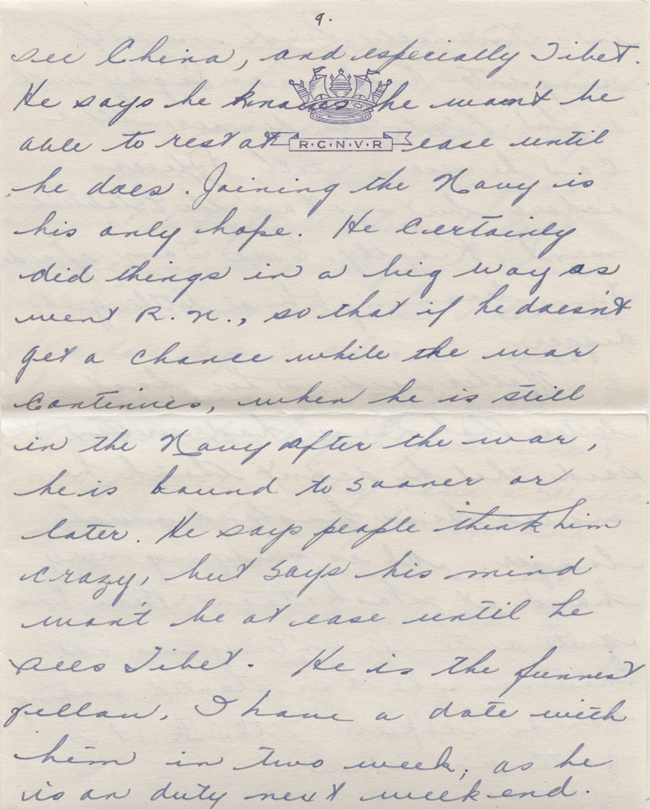 9.
see China, and especially Tibet.
He says he knows he won't be
able to rest at ease until
R·C·N·V·R
he does. Joining the Navy is
his only hope. He certainly
did things in a big way as
went R.N., so that if he doesn't
get a chance while the war
continues, when he is still
in the Navy after the war,
he is bound to sooner or
later. He says people think him
crazy, but says his mind
won't be at ease until he
sees Tibet. He is the funniest
fellow. I have a date with
him in two week, as he
is on duty next week end.